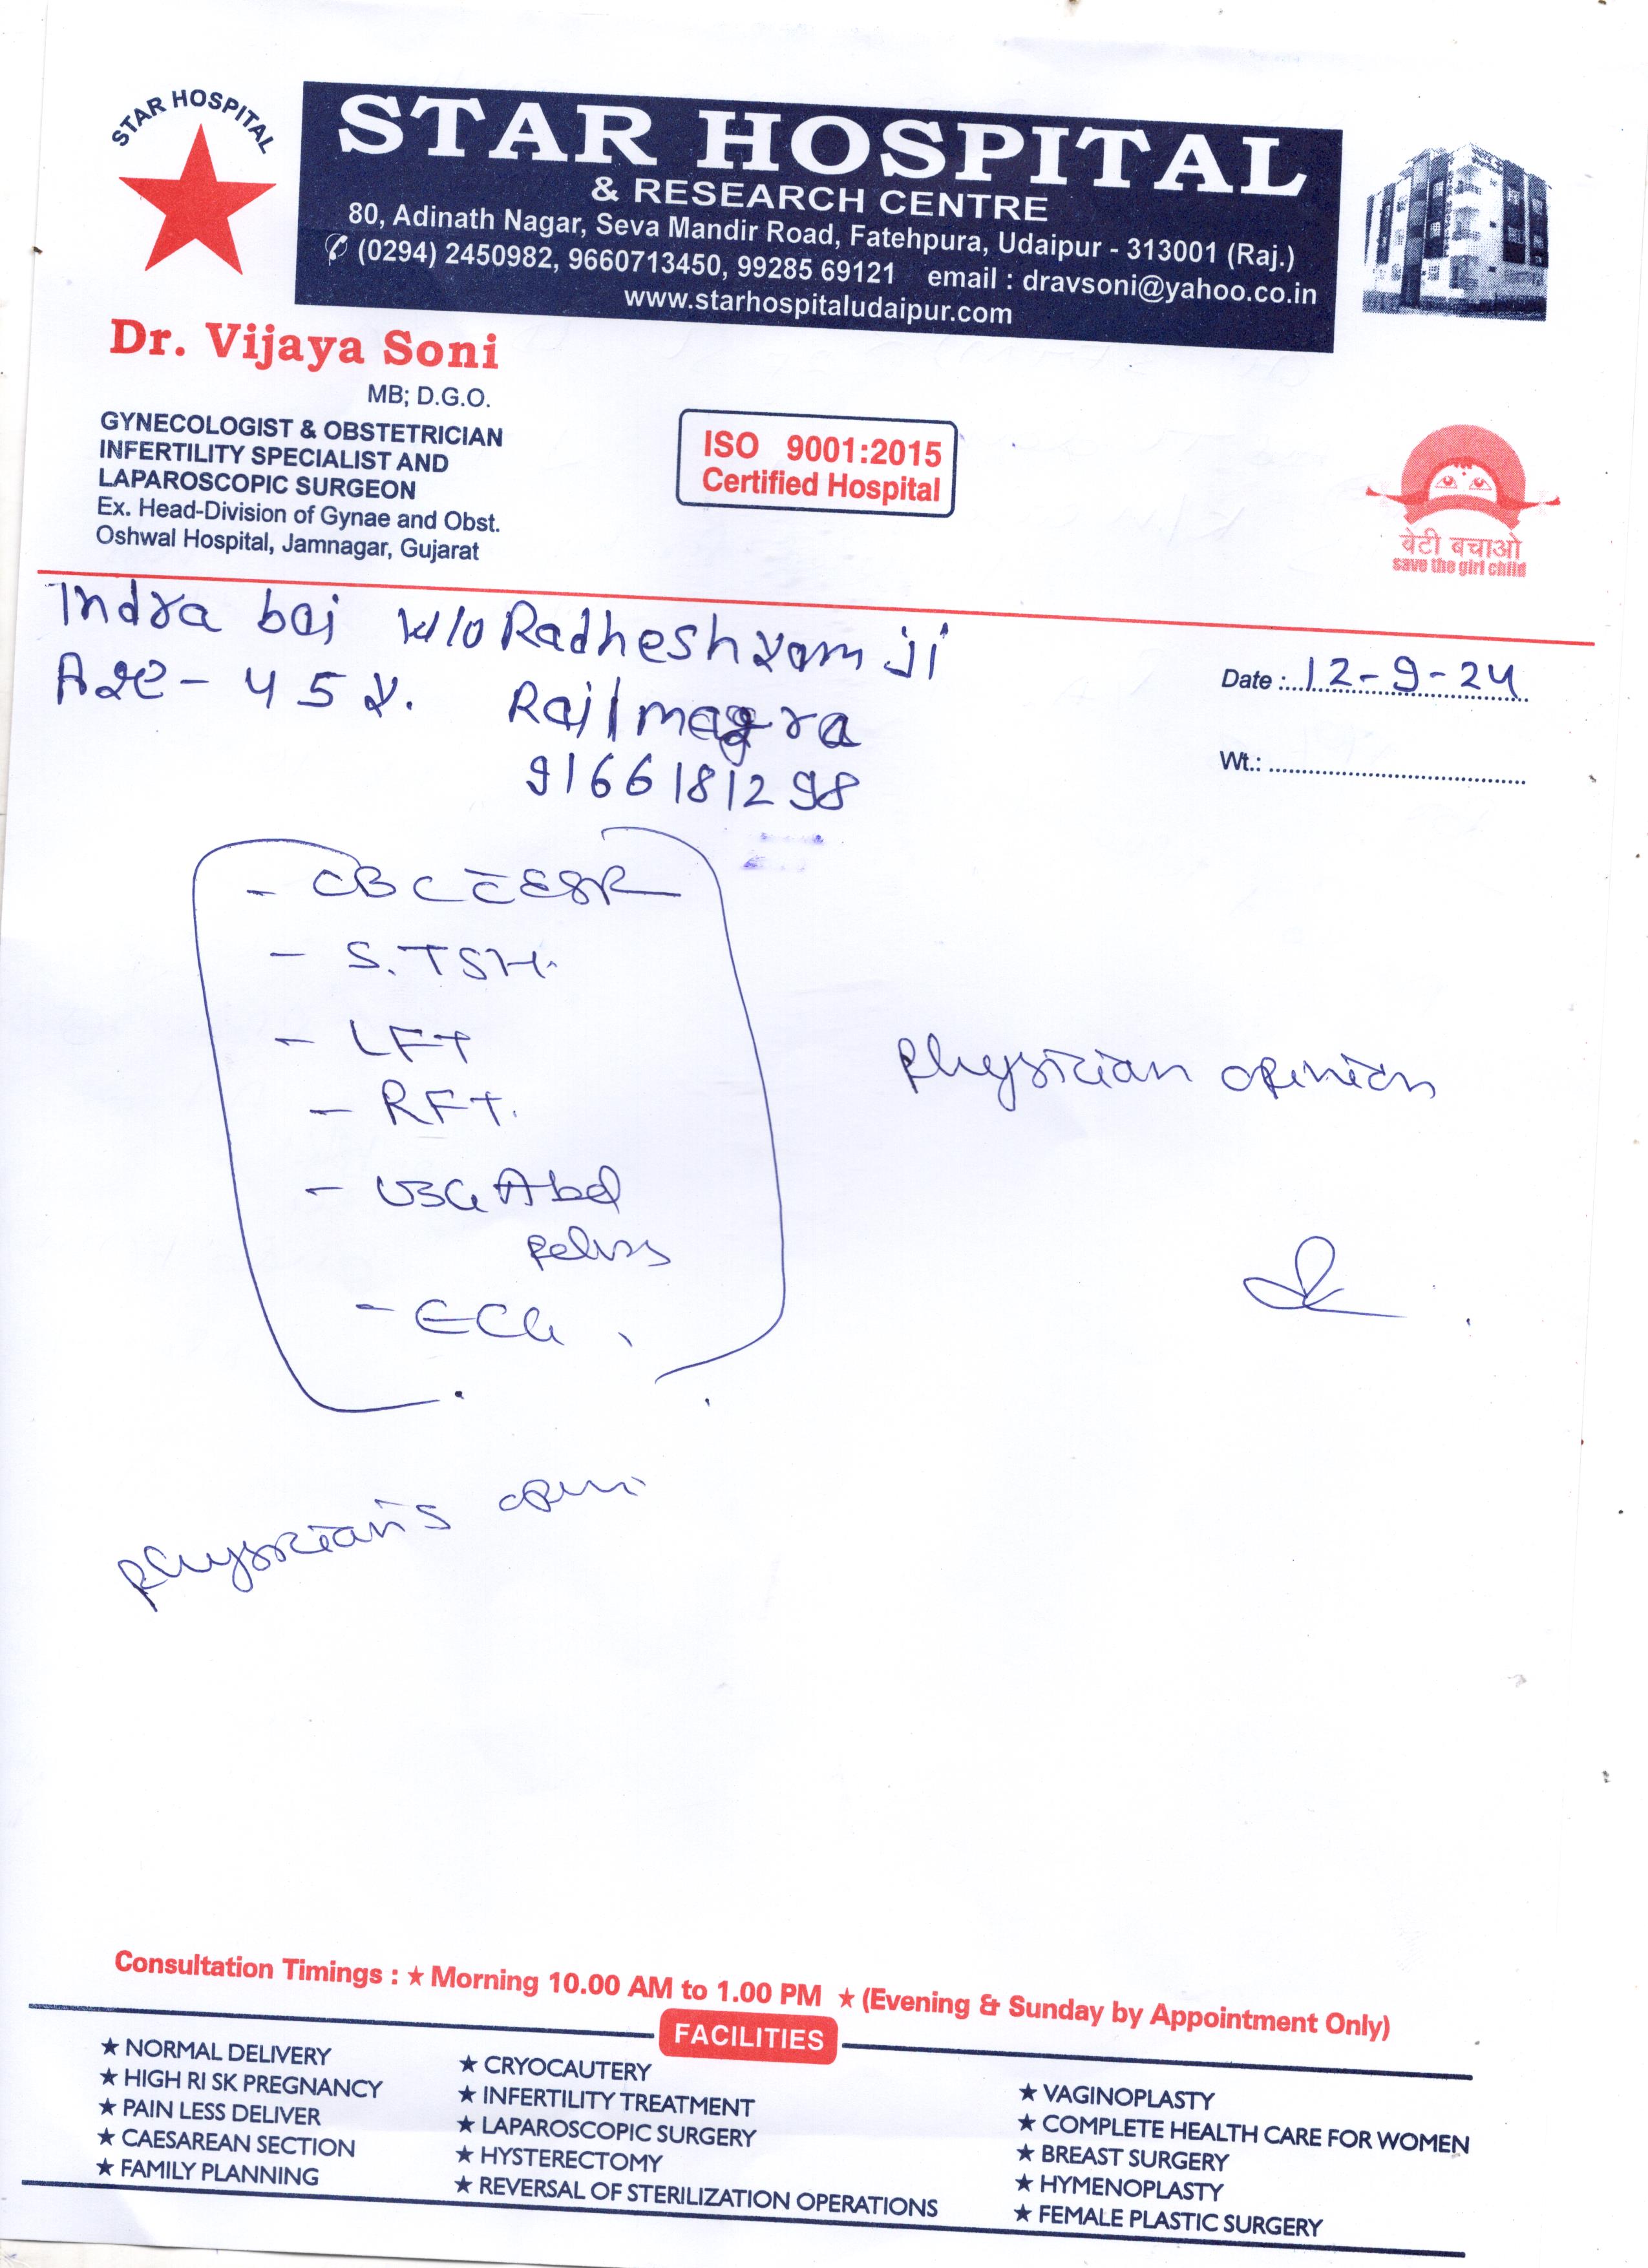 STAR HOSPITAL
STAR HOSPITAL
& RESEARCH CENTRE
80, Adinath Nagar, Seva Mandir Road, Fatehpura, Udaipur - 313001 (Raj.)
✆ (0294) 2450982, 9660713450, 99285 69121 email : dravsoni@yahoo.co.in
www.starhospitaludaipur.com
Dr. Vijaya Soni
MB; D.G.O.
GYNECOLOGIST & OBSTETRICIAN
INFERTILITY SPECIALIST AND
LAPAROSCOPIC SURGEON
Ex. Head-Division of Gynae and Obst.
Oshwal Hospital, Jamnagar, Gujarat
ISO 9001:2015
Certified Hospital
बेटी बचाओ
save the girl child
Indra bai W/o Radheshyam ji
Age - 45 y. Railmagra
9166181298
Date : 12-9-24
Wt.:
- CBC c̄ ESR
- S. TSH.
- LFT
- RFT.
- USG Abd
pelvis
- ECG
physician opinion
physician's
Consultation Timings : ★ Morning 10.00 AM to 1.00 PM ★ (Evening & Sunday by Appointment Only)
FACILITIES
★ NORMAL DELIVERY
★ HIGH RI SK PREGNANCY
★ PAIN LESS DELIVER
★ CAESAREAN SECTION
★ FAMILY PLANNING
★ CRYOCAUTERY
★ INFERTILITY TREATMENT
★ LAPAROSCOPIC SURGERY
★ HYSTERECTOMY
★ REVERSAL OF STERILIZATION OPERATIONS
★ VAGINOPLASTY
★ COMPLETE HEALTH CARE FOR WOMEN
★ BREAST SURGERY
★ HYMENOPLASTY
★ FEMALE PLASTIC SURGERY